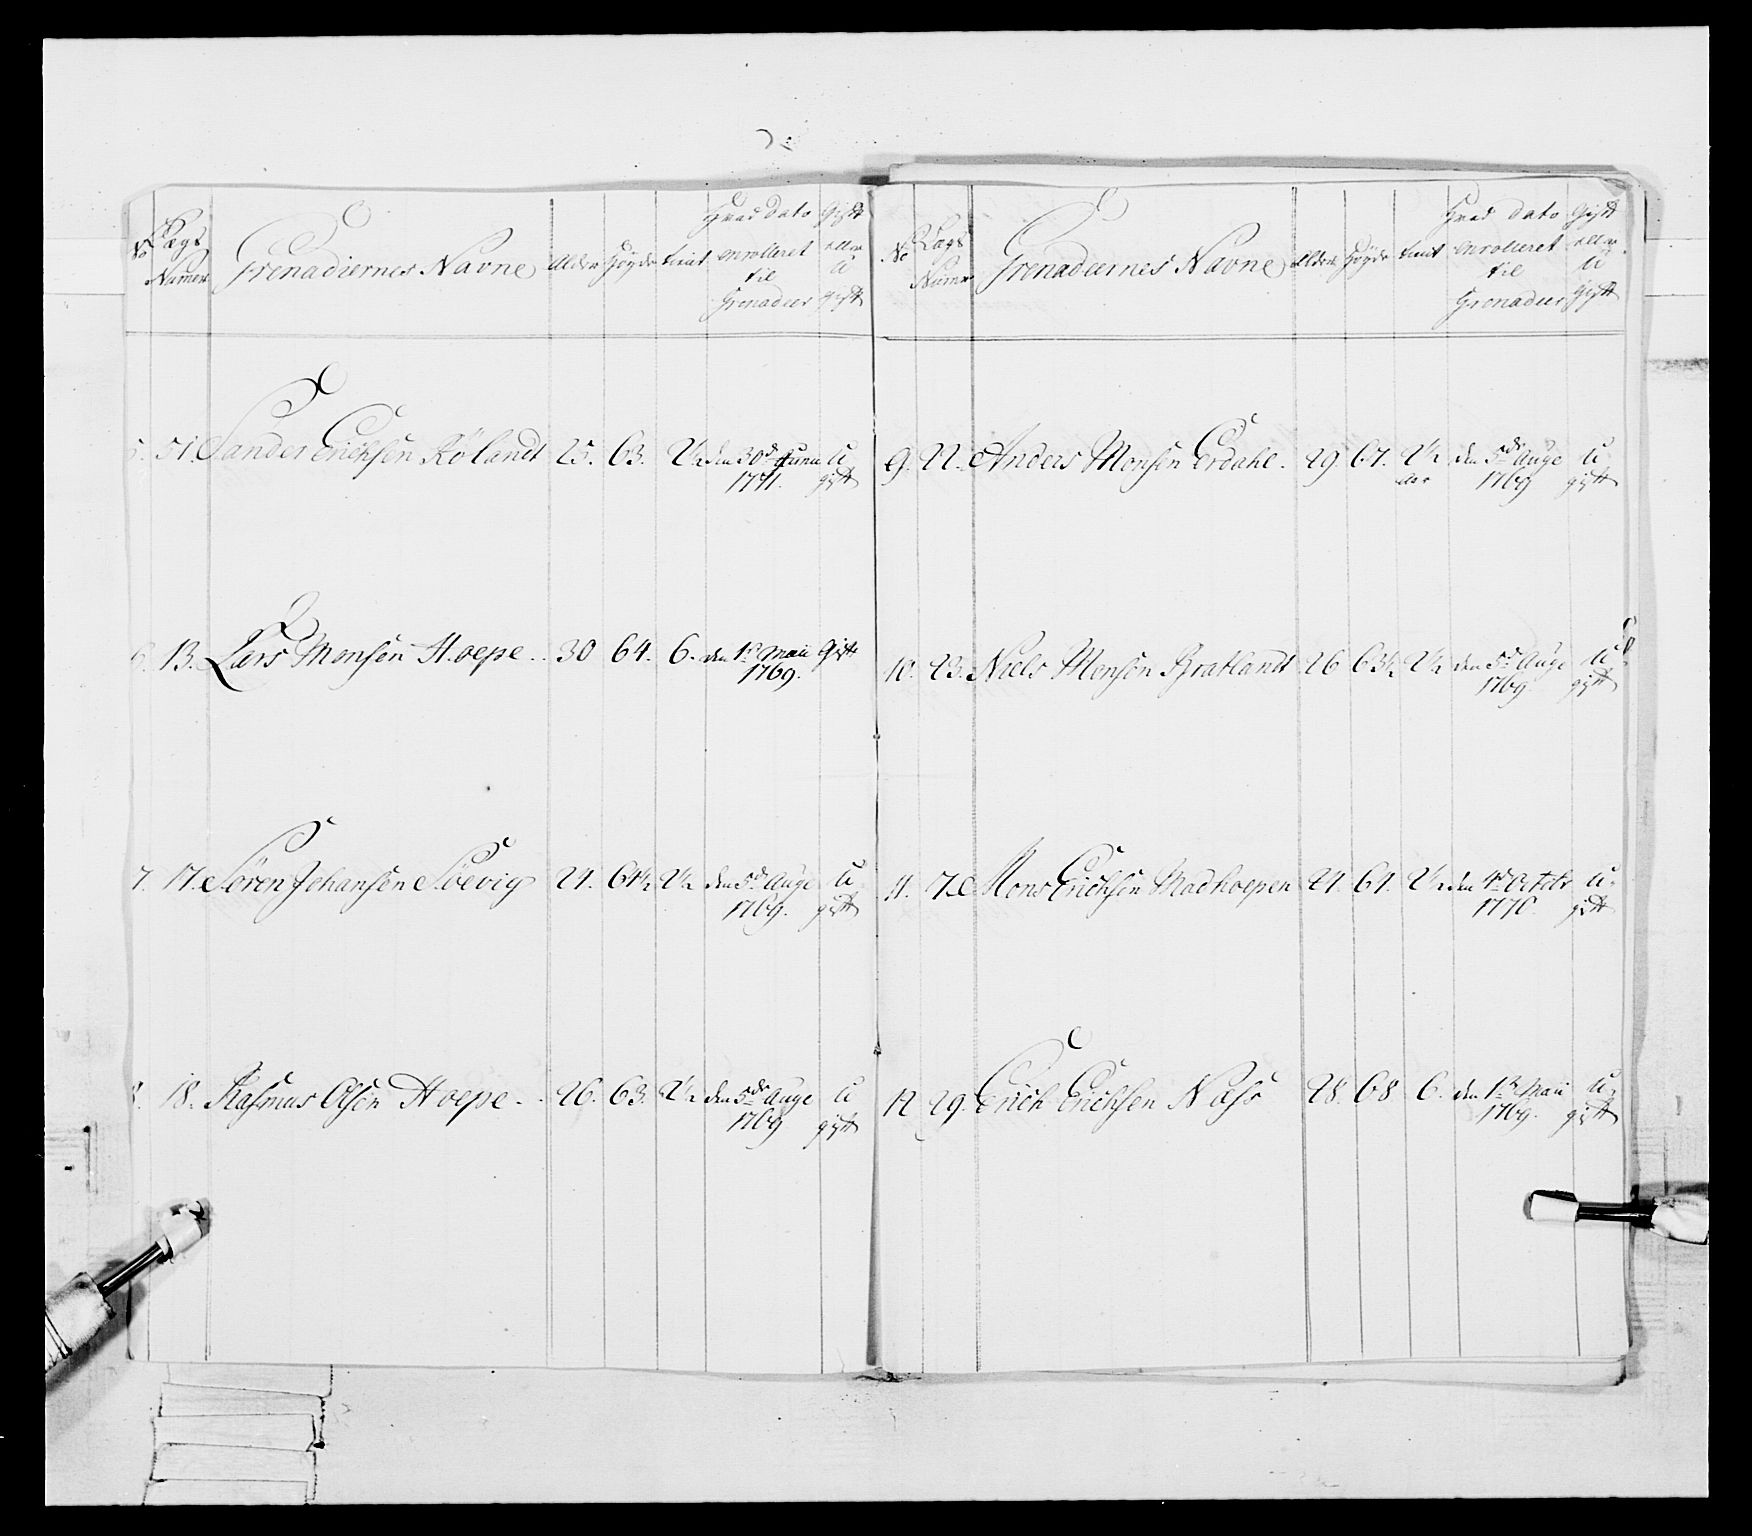 No Lægs Numer Grenadiernes Navne Alder Høyde tient Hvad dato enrolleret til Grenadeer Gift eller U gift
5. 51. Sander Erichsen Røland 25. 63. 2½ den 30d Junii U
1771. gift
6. 13. Lars Monsen Hoepe 30 64. 6. den 1st Maii Gift
1769.
7. 17. Søren Johansen Soevig 24. 64½ 2½ den 5d Auge U
1769. gift
8. 18. Rasmus Olsen Hoepe 26. 63. 2½ den 5de Auge U
1769 gift
No Lægs Numer Grenadeernes Navne Alder Høyde tient Hvad dato enrolleret til Grenadeer Gift eller U Gift
9. 22. Anders Monsen Erdahl. 29. 67. 2½ den 5de Auge U
1769 gift
10. 23. Niels Monsen Bratland 26 63½ 2½ den 5d Auge U
1769. gift
11. 7. Mons Erichsen Madhoepen 24 64. 2½ den 4d Octobr U
1770. gift
12 29. Erich Erichsen Næss 28. 68 6. den 1st Maii U
1769. gift